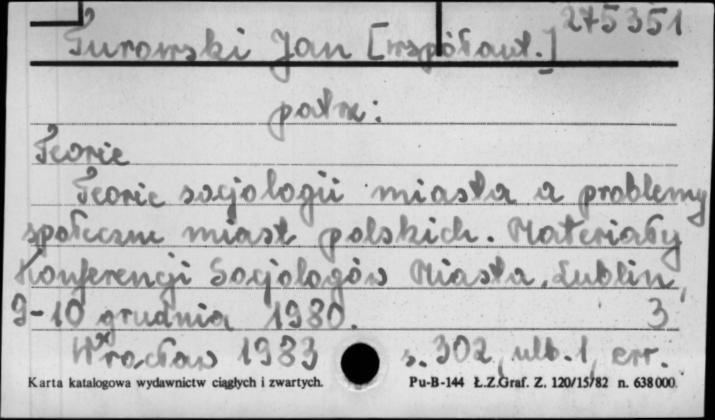 275351
Turowski Jan [współaut.]
patrz:
Teorie
Teorie socjologii miasta a problemy
społeczne miast polskich. Materiały
Konferencji Socjologów Miasta, Lublin,
9-10 grudnia 1980. 3
Wrocław 1983 s. 302, ulb. 1, err.
Karta katalogowa wydawnictw ciągłych i zwartych. Pu-B-144 Ł.Z.Graf. Z. 120/15/82 n. 638000.